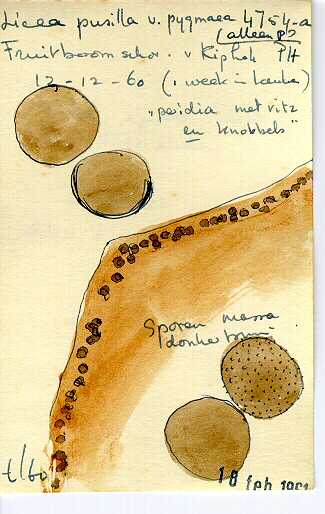 Licea pusilla v. pygmaea 4754-a
(alleen pl)
Fruitboom schors v Kiphok PH
12-12-60 (1 week in kamer)
"peridia met vitz
en knobbels"
Sporen massa
donker bruin
t/60
18 feb 1961